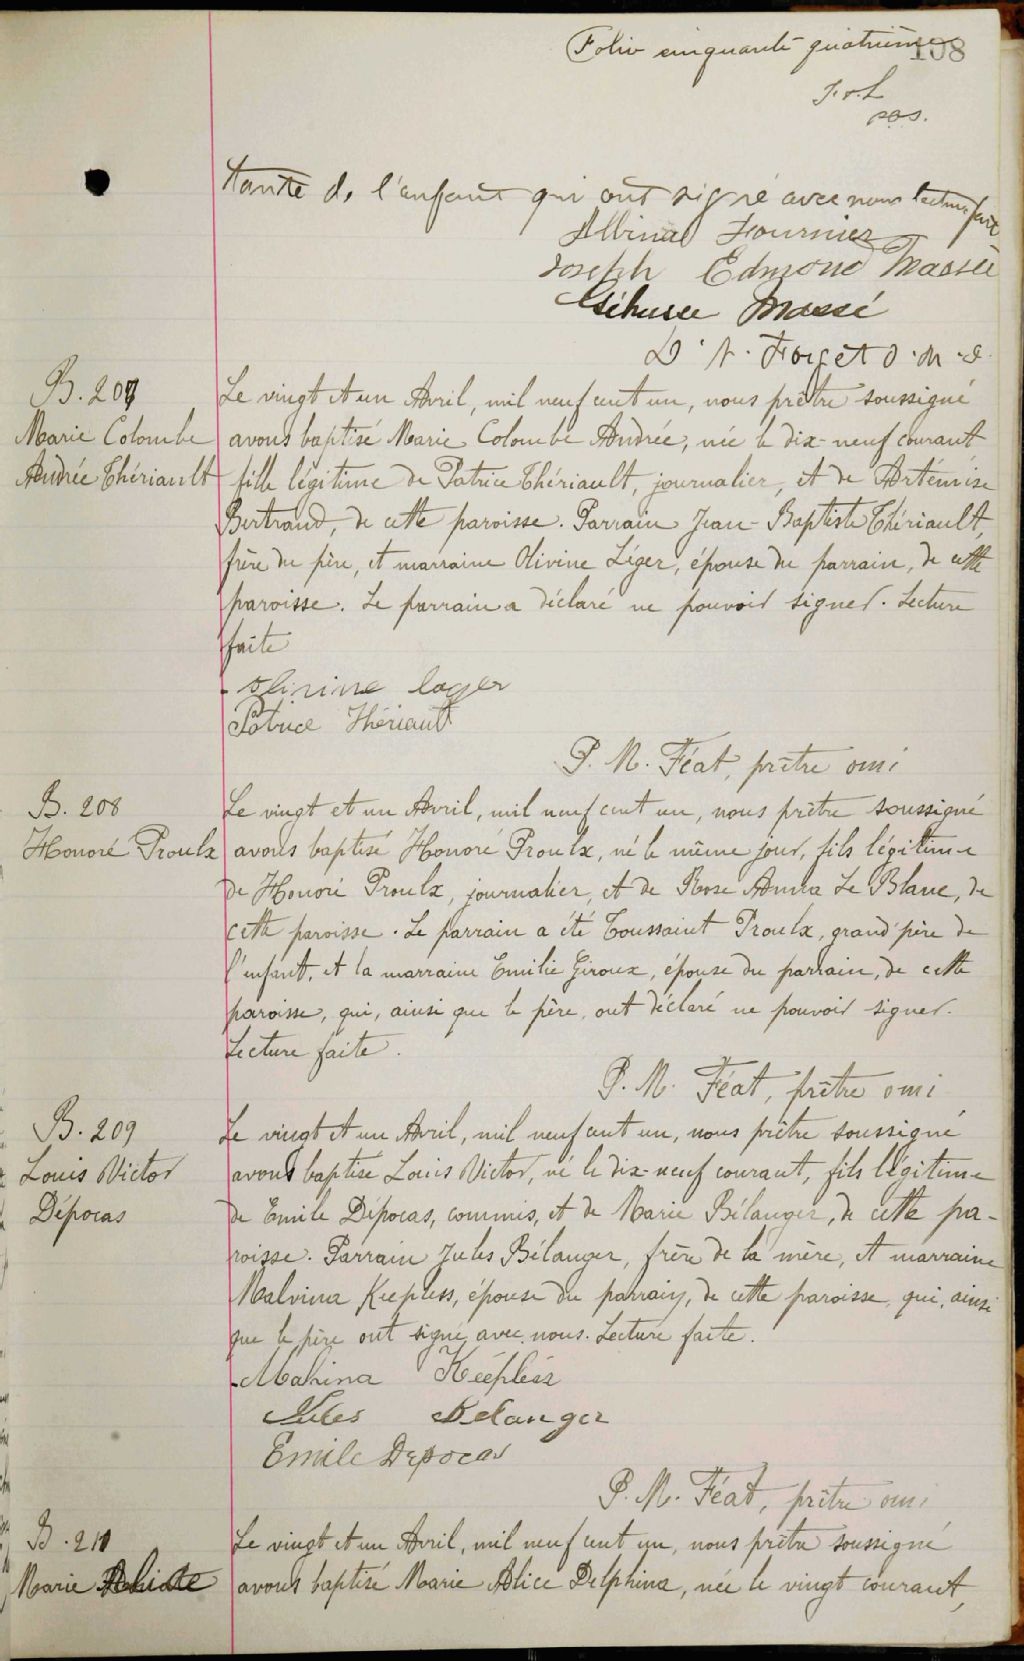 Folio cinquante quatrième
108
J. o. L
p.o.s.
tante de l'enfant qui ont signé avec nous lecture faite
Albina Fournier
Joseph Edmond Massée
Massé
D. N. Forget O. M. I.
B. 207
Marie Colombe
Andrée Thériault
Le vingt et un Avril, mil neuf cent un, nous prêtre soussigné
avons baptisé Marie Colombe Andrée, née le dix-neuf courant
fille légitime de Patrice Thériault, journalier, et de Artémise
Bertrand, de cette paroisse. Parrain Jean-Baptiste Thériault,
frère du père, et marraine Olivine Léger, épouse du parrain, de cette
paroisse. Le parrain a déclaré ne pouvoir signer. Lecture
faite
Olivine lager
Patrice Thériault
P. M. Féat, prêtre omi
B. 208
Honoré Proulx
Le vingt et un Avril, mil neuf cent un, nous prêtre soussigné
avons baptisé Honoré Proulx, né le même jour, fils légitime
de Honoré Proulx, journalier, et de Rose Anna Le Blanc, de
cette paroisse. Le parrain a été Toussaint Proulx, grand'père de
l'enfant, et la marraine Emilie Giroux, épouse du parrain, de cette
paroisse, qui, ainsi que le père, ont déclaré ne pouvoir signer.
Lecture faite.
P. M. Féat, prêtre omi
B. 209
Louis Victor
Dépocas
Le vingt et un Avril, mil neuf cent un, nous prêtre soussigné
avons baptisé Louis Victor, né le dix-neuf courant, fils légitime
de Emile Dépocas, commis, et de Marie Bélanger, de cette pa-
roisse. Parrain Jules Bélanger, frère de la mère, et marraine
Malvina Keepless, épouse du parrain, de cette paroisse, qui, ainsi
que le père ont signé avec nous. Lecture faite.
Malvina Kéepless
Jules Belanger
Emile Depocas
P. M. Féat, prêtre omi
B. 210
Marie
Le vingt et un Avril, mil neuf cent un, nous prêtre soussigné
avons baptisé Marie Alice Delphina, née le vingt courant,